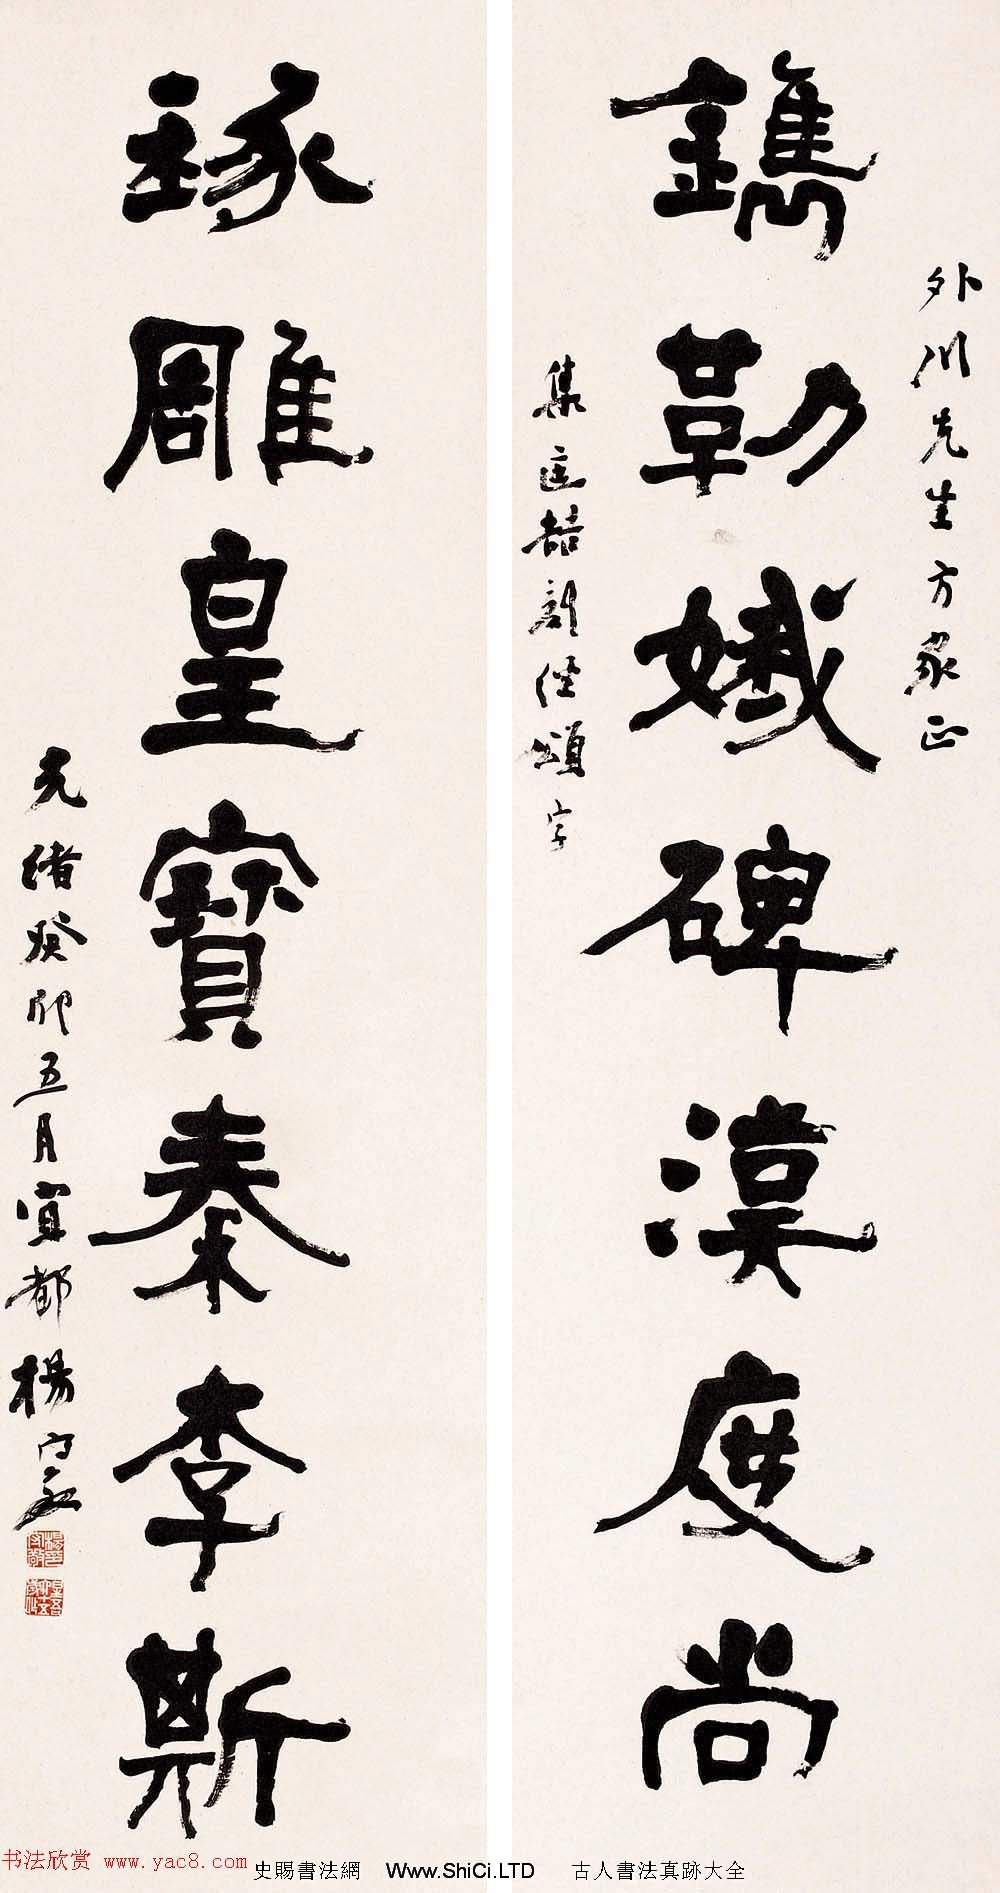 外川先生方家正
鐫勒娥碑漢度尚
集匡喆刻經頌字
琢雕皇寶秦李斯
光緒癸卯五月宜都楊守敬
楊守敬印
书法欣赏 www.yac8.com
史賜書法網 Www.ShiCi.LTD 古人書法真跡大全